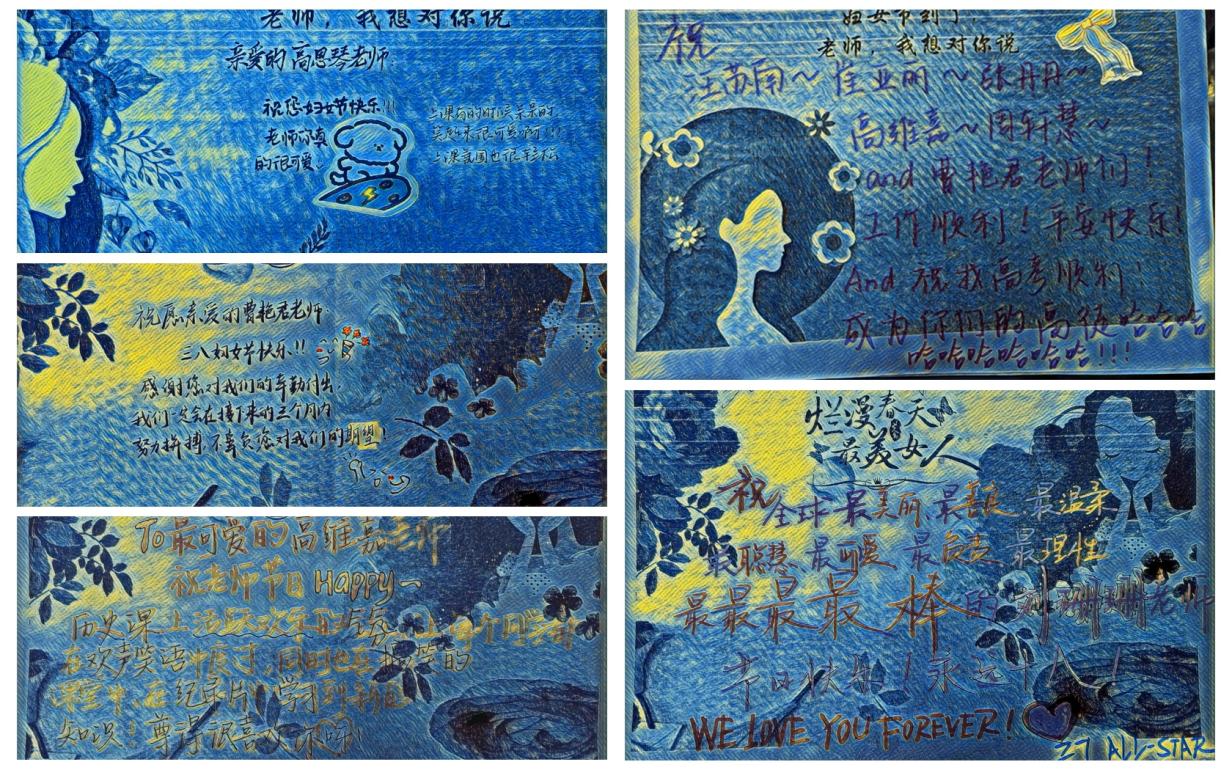 老师，我想对你说
亲爱的高思琴老师:
祝您妇女节快乐!!!
老师你真
的很可爱.
上课有的时候呆呆的
上课氛围也很轻松
祝愿亲爱的曹艳君老师
三八妇女节快乐!!
感谢您对我们的辛勤付出.
我们一定会在接下来的三个月内
努力拼搏 不辜负您对我们的期望!
To 最可爱的高维嘉老师
祝老师节日Happy~
历史课上活跃欢乐的
在欢声笑语中 同时也在
课堂中,在纪录片 学习到新的
知识! 喜欢
妇女节到了,
老师,我想对你说
祝
汪苏南~崔亚丽~张丹丹~
高维嘉~周轩慧~
and 曹艳君老师们!
工作顺利!平安快乐!
And 祝我高考顺利!
成为你们的高徒哈哈哈
哈哈哈哈哈哈哈!!!
烂漫春天
最美女人
祝全球最美丽、最善良 最温柔
最聪慧 最可爱 最负责 最理性
最最最最棒的 老师
节日快乐!永远十八!
WE LOVE YOU FOREVER!
27 ALL-STAR